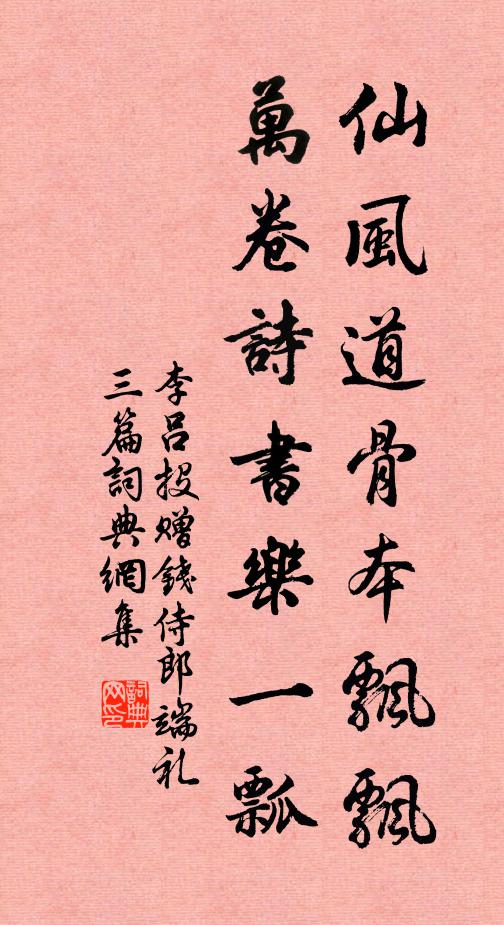 仙風道骨本飄飄
萬卷詩書樂一瓢
李呂投贈錢侍郎端礼
三篇詞典網集
詞典网印